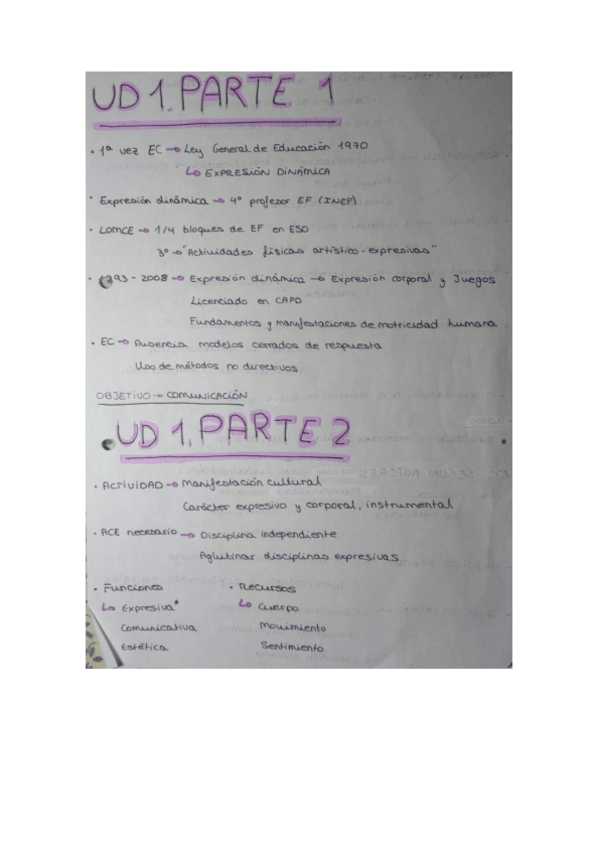 UD 1. PARTE 1
• 1ª vez EC → Ley General de Educación 1970
↳ EXPRESIÓN DINÁMICA
• Expresión dinámica → 4º profesor EF (INEF)
• LOMCE → 1/4 bloques de EF en ESO
3º → "Actividades físicas artístico-expresivas"
• 1993 - 2008 → Expresión dinámica → Expresión corporal y Juegos
Licenciado en CAFD
Fundamentos y manifestaciones de motricidad humana
• EC → Ausencia modelos cerrados de respuesta
Uso de métodos no directivos
OBJETIVO → COMUNICACIÓN
UD 1. PARTE 2
• ACTIVIDAD → Manifestación cultural
Carácter expresivo y corporal, instrumental
• ACE necesario → Disciplina independiente
Aglutinar disciplinas expresivas
• Funciones • Recursos
↳ Expresiva* ↳ Cuerpo
Comunicativa Movimiento
Estética Sentimiento